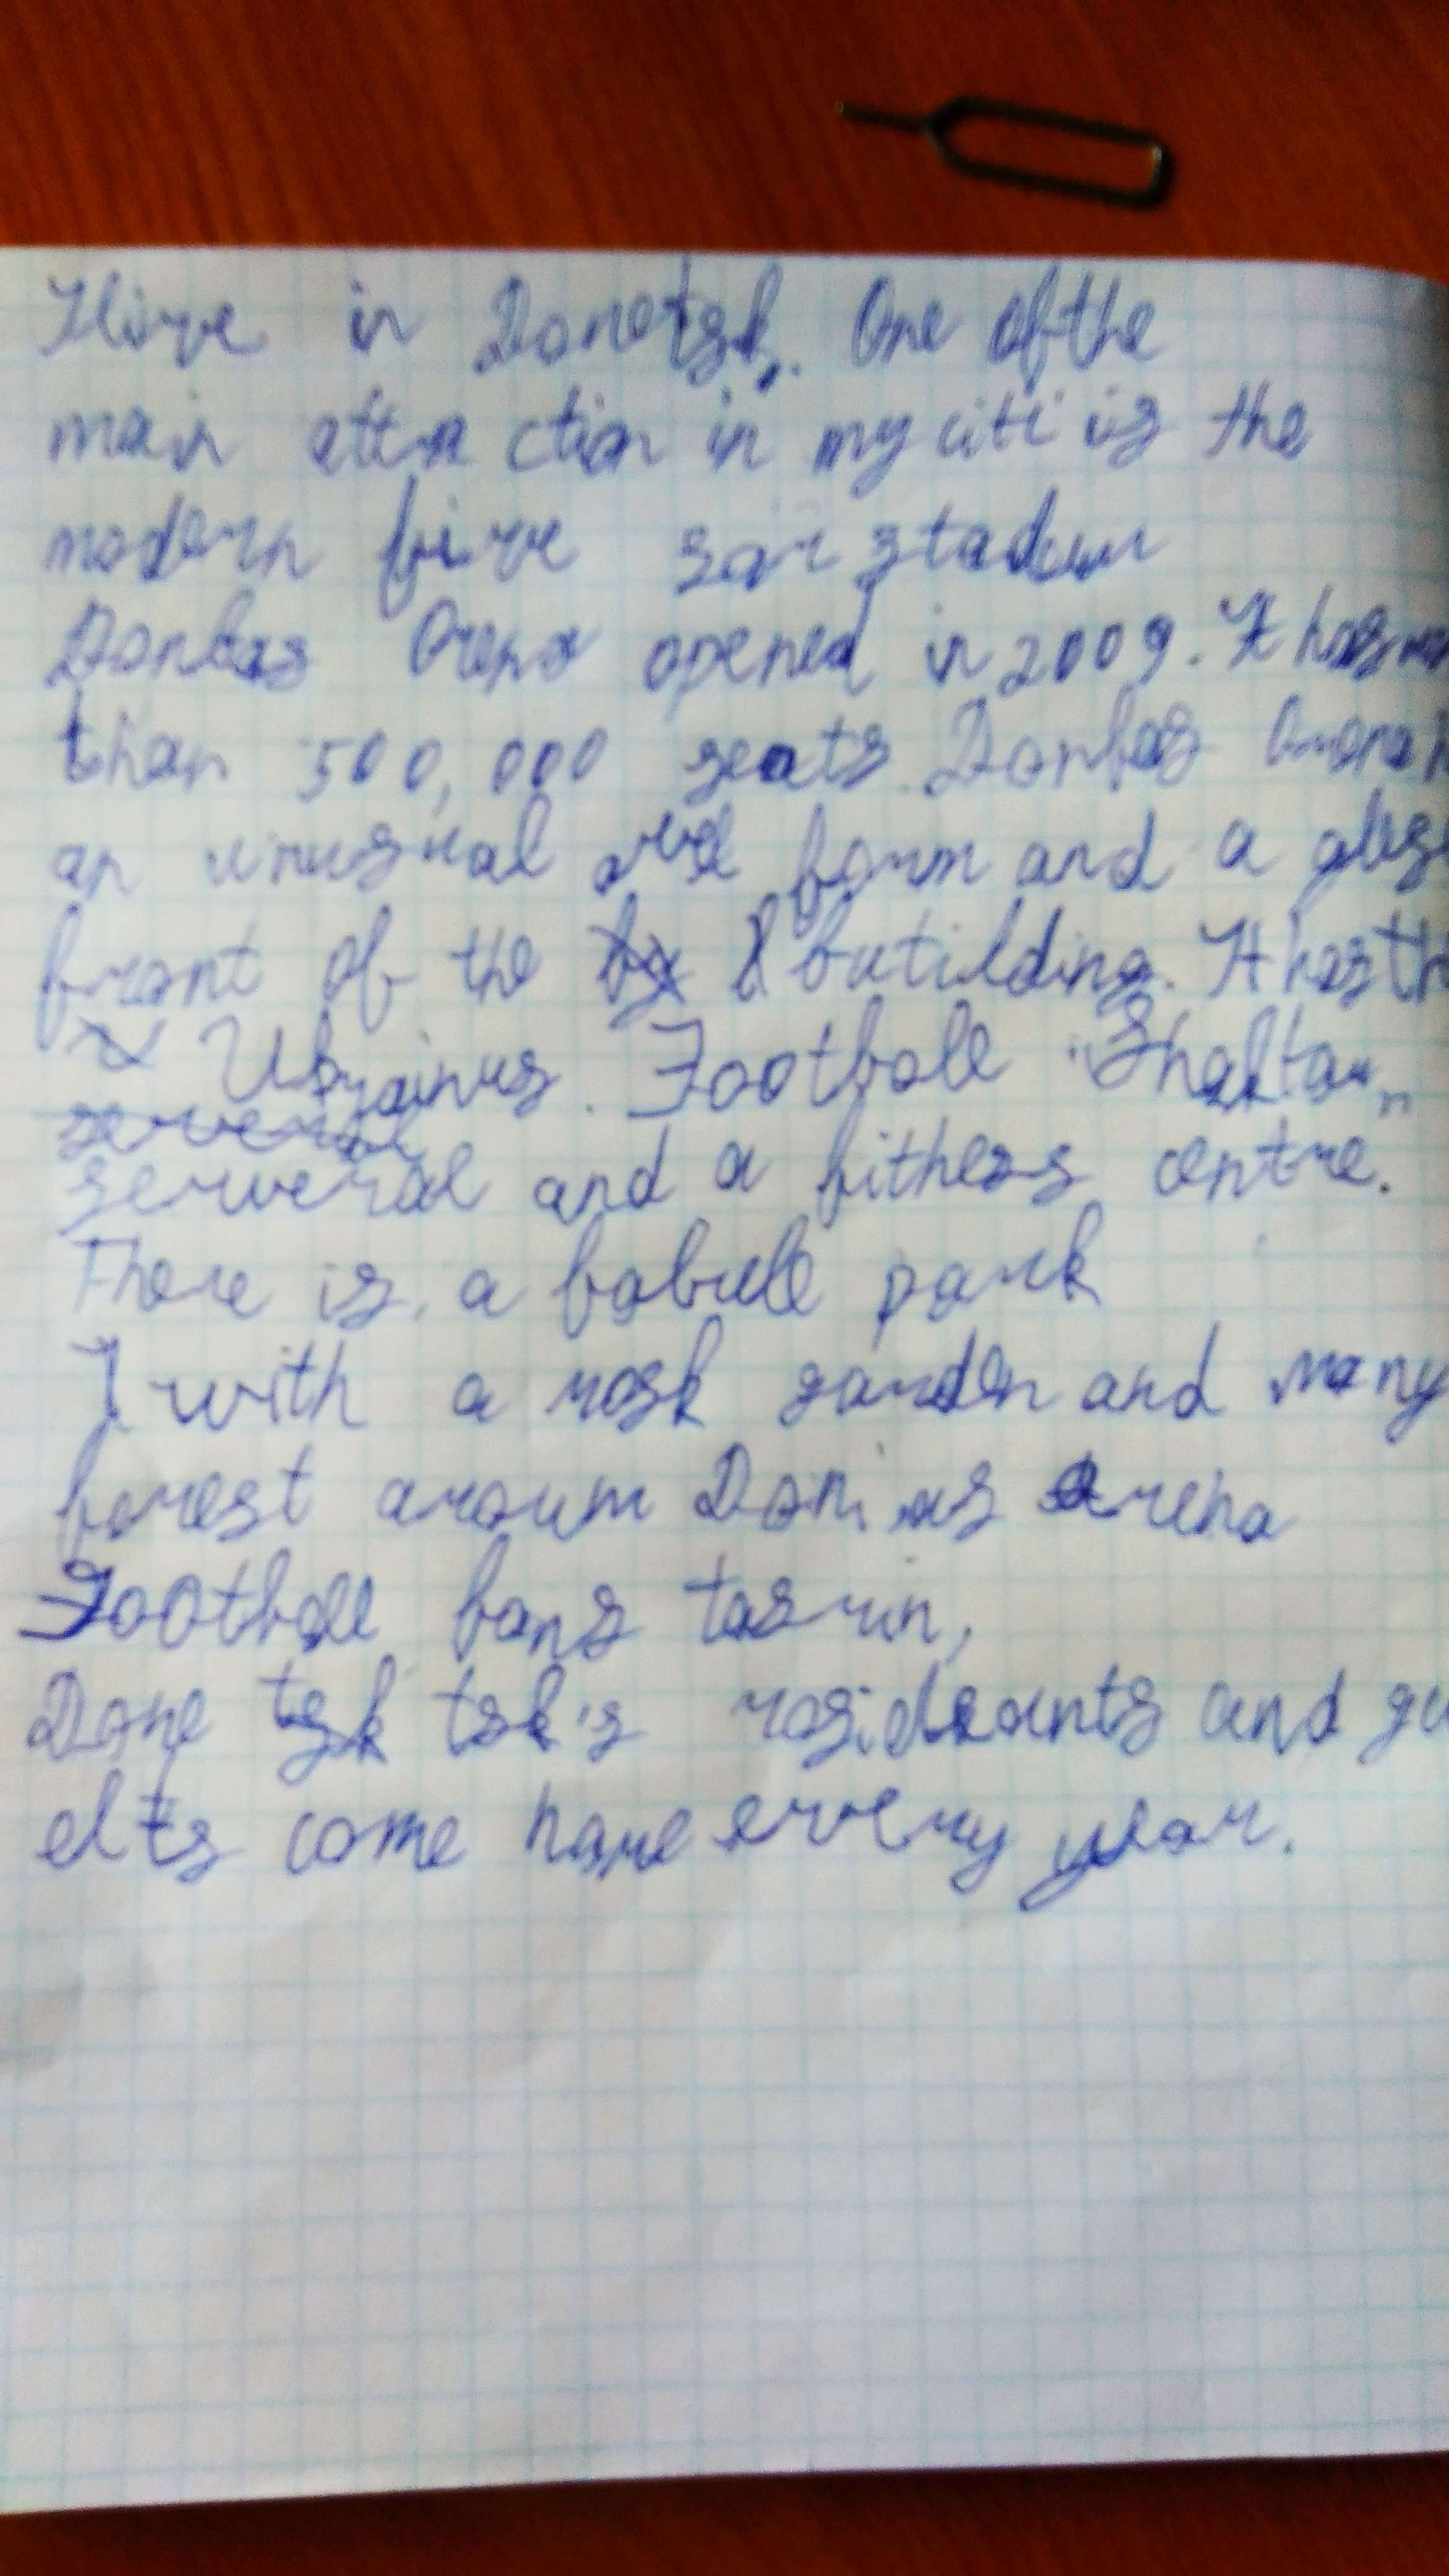 I live in Donetsk. One of the
main attraction in my citi is the
modern five sar stadium
Donbas Arena opened in 2009. It has
than 500,000 seats. Donbas Arena
an unusual form and a
front of the butilding. It has
Ukrainus. Footbole Shaktar
several
serveral and a fithess centre.
There is a park
with a garden and many
forest aroum Arena
Footboll fans
Donetsk tsk's and gu
elts come hare every year.